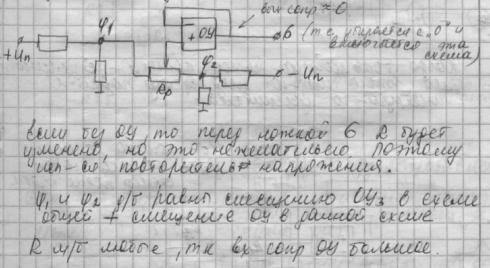 вых сопр ≈ 0
φ₁
+ ОУ
6 (т.к. убирается с „0" и
эта
схема)
+Uп
φ₂
Rр
−Uп
Если без ОУ, то перед ножкой 6 R будет
но это нежелательно поэтому
исп-ся повторитель напряжения.
φ₁ и φ₂ д/б равны смещению ОУ₃ в схеме
общей + смещение ОУ в данной схеме
R м/б любые, т.к вх сопр ОУ большое.